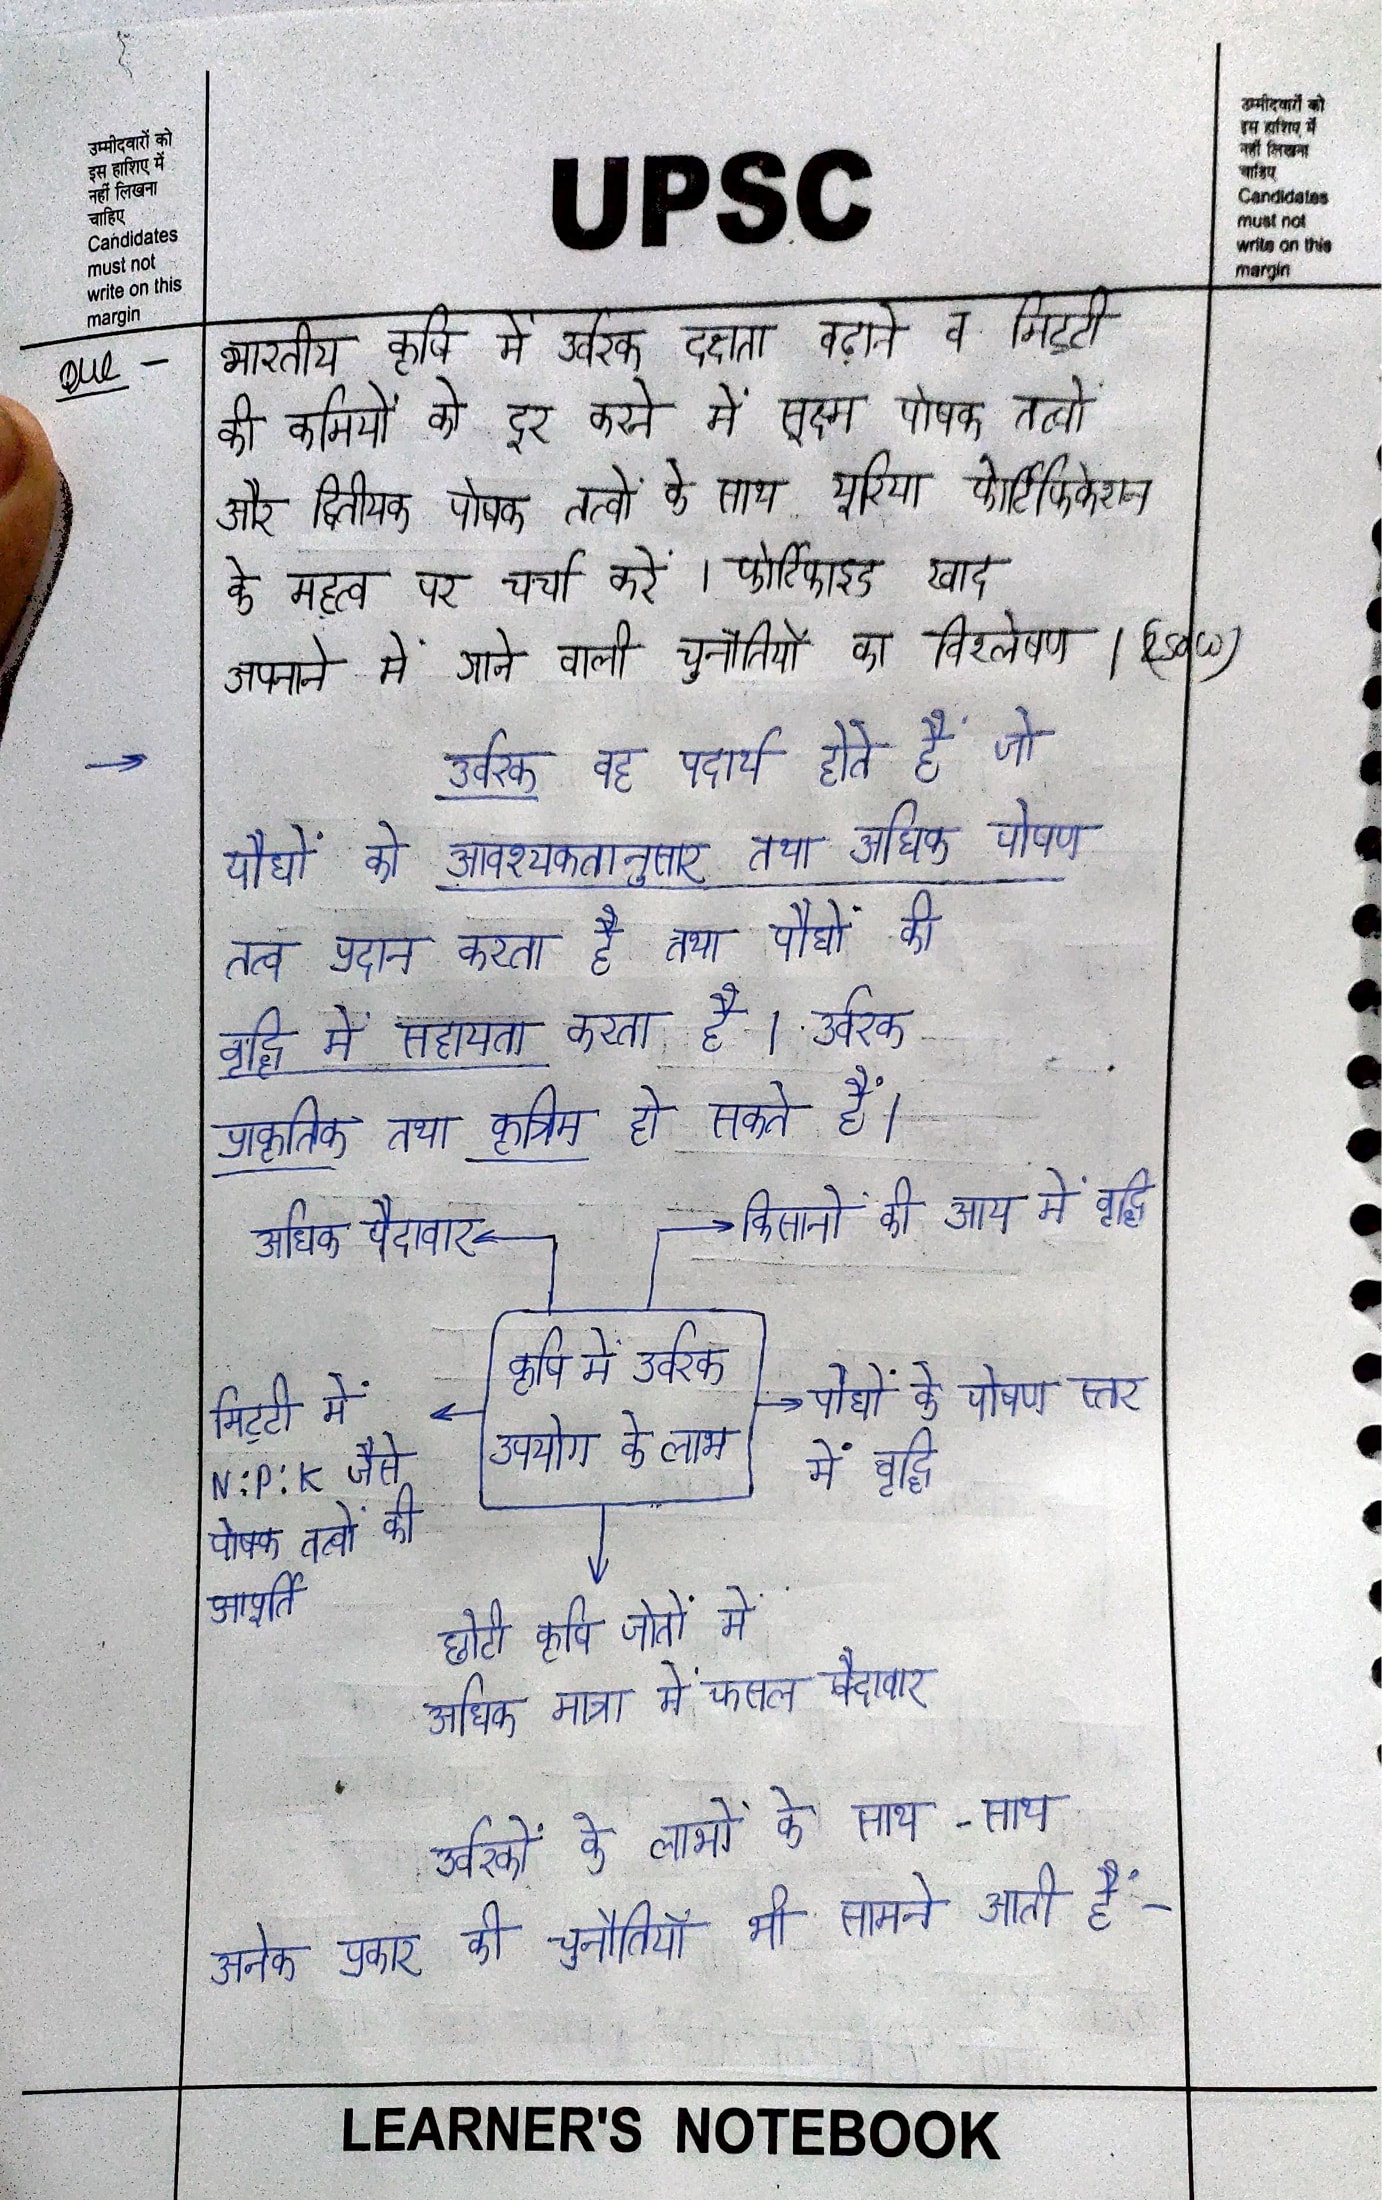 उम्मीदवारों को
इस हाशिए में
नहीं लिखना
चाहिए
Candidates
must not
write on this
margin
UPSC
उम्मीदवारों को
इस हाशिए में
नहीं लिखना
चाहिए
Candidates
must not
write on this
margin
Que - भारतीय कृषि में उर्वरक दक्षता बढ़ाने व मिट्टी
की कमियों को दूर करने में सूक्ष्म पोषक तत्वों
और द्वितीयक पोषक तत्वों के साथ यूरिया फोर्टिफिकेशन
के महत्व पर चर्चा करें । फोर्टिफाइड खाद
अपनाने में आने वाली चुनौतियों का विश्लेषण ।
→ उर्वरक वह पदार्थ होते हैं जो
पौधों को आवश्यकतानुसार तथा अधिक पोषण
तत्व प्रदान करता है तथा पौधों की
वृद्धि में सहायता करता है । उर्वरक
प्राकृतिक तथा कृत्रिम हो सकते हैं ।
अधिक पैदावार
किसानों की आय में वृद्धि
कृषि में उर्वरक
उपयोग के लाभ
मिट्टी में
N:P:K जैसे
पोषक तत्वों की
आपूर्ति
पौधों के पोषण स्तर
में वृद्धि
छोटी कृषि जोतों में
अधिक मात्रा में फसल पैदावार
उर्वरकों के लाभों के साथ - साथ
अनेक प्रकार की चुनौतियाँ भी सामने आती हैं -
LEARNER'S NOTEBOOK